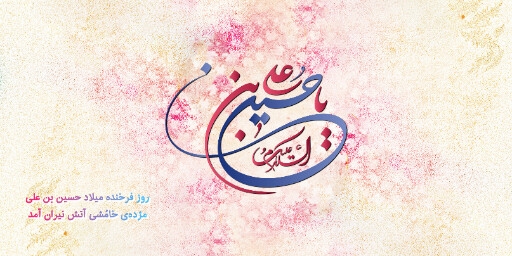 یا حسین بن علی
السلام علیکم
روز فرخنده میلاد حسین بن علی
مژده‌ی خامُشی آتش نیران آمد